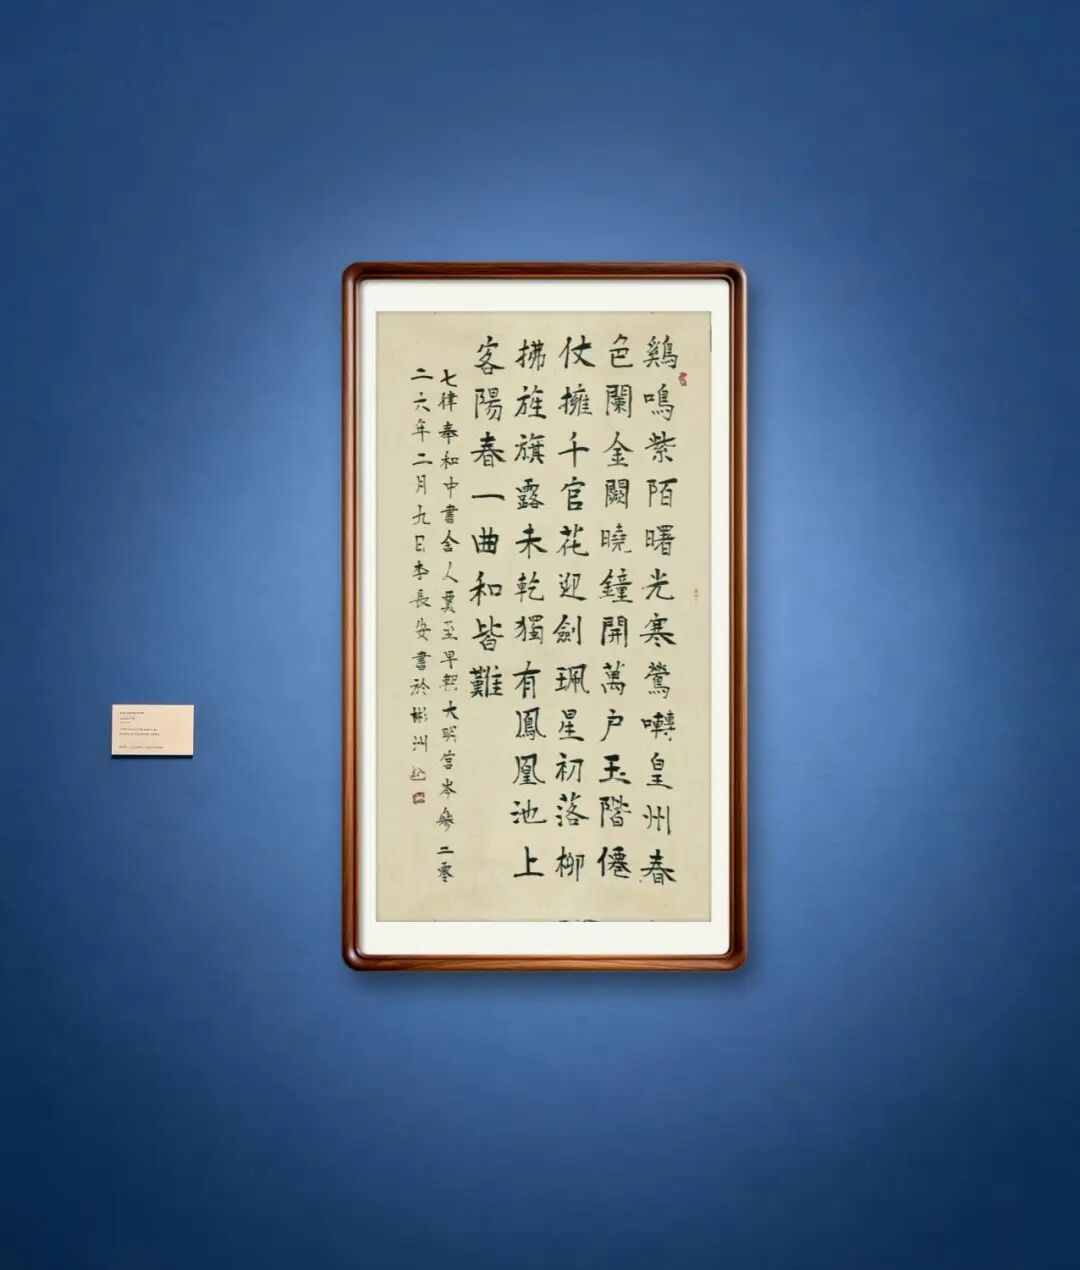 鷄鳴紫陌曙光寒鶯囀皇州春
色闌金闕曉鐘開萬户玉階僊
仗擁千官花迎劍珮星初落柳
拂旌旗露未乾獨有鳳凰池上
客陽春一曲和皆難
七律奉和中書舍人賈至早朝大明宮岑參二零
二六年二月九日李長安書於彬洲